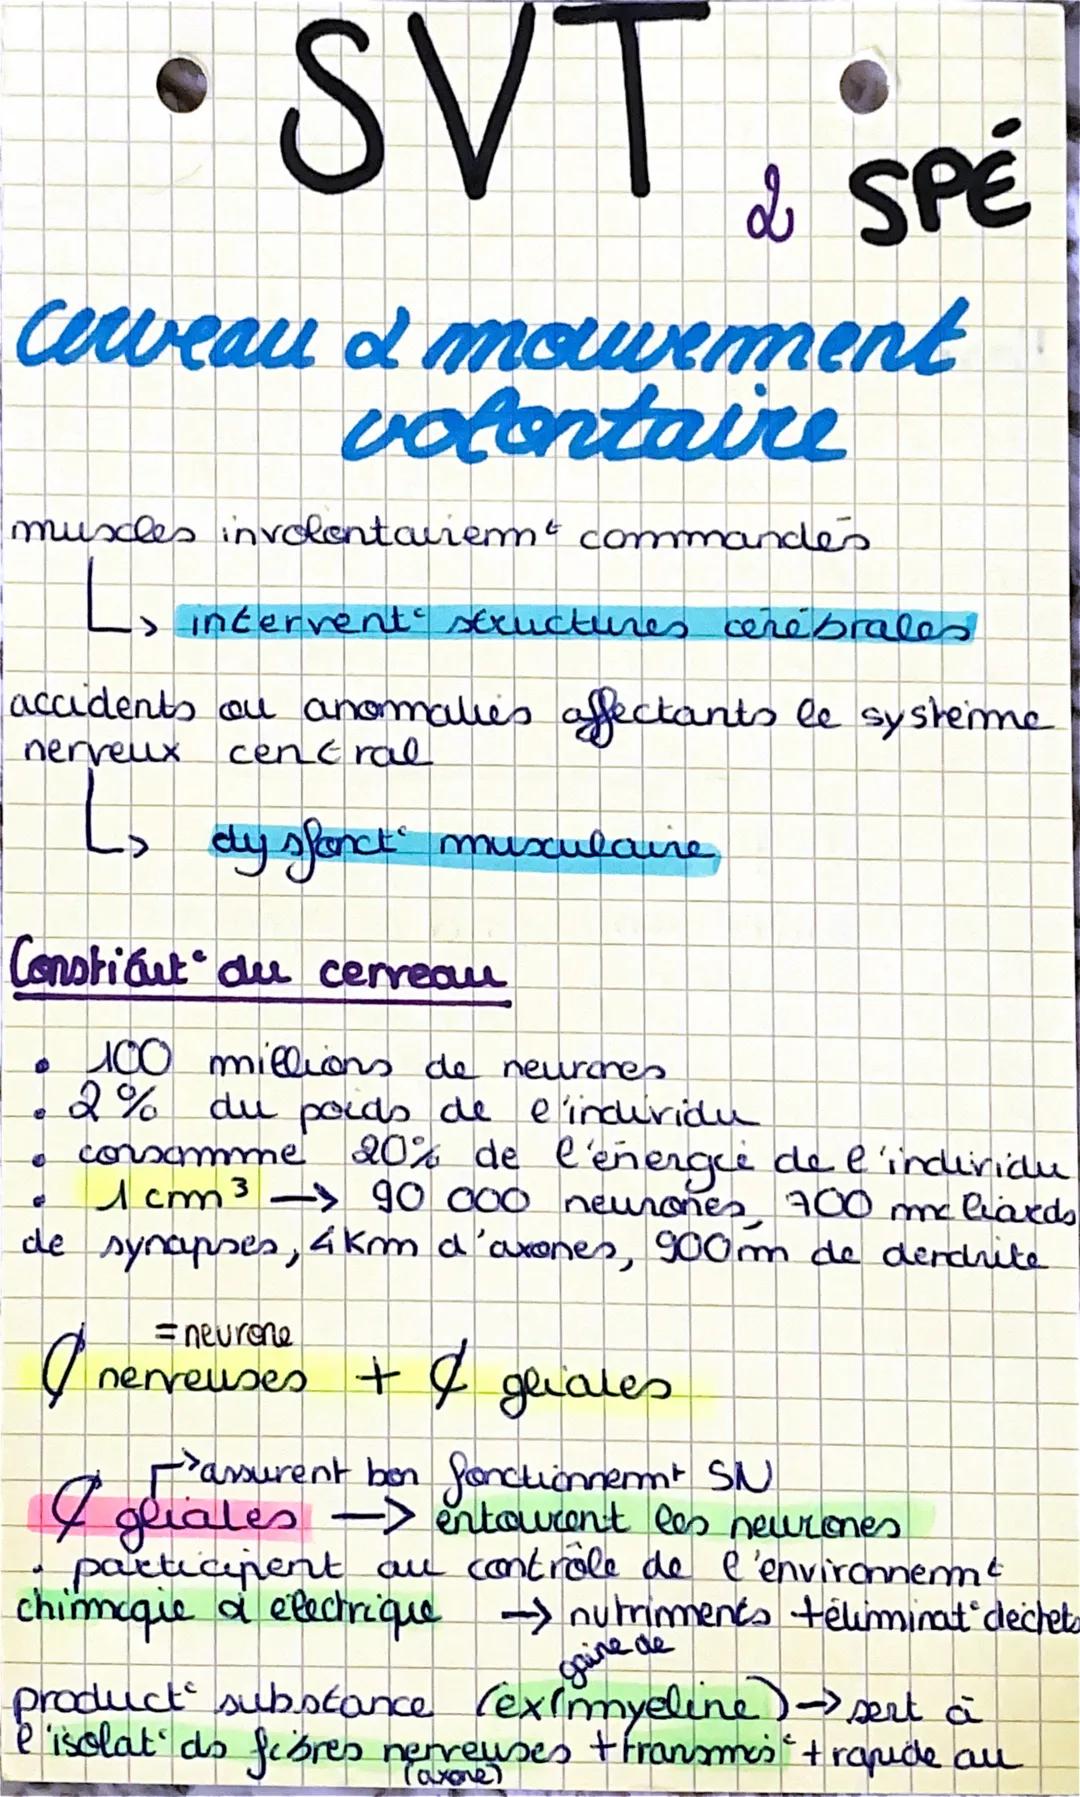 SVT
& SPÉ
cerveau & mouvement
volontaire
muscles involontairemt commandés
↳ intervent° structures cérébrales
accidents ou anomaliés affectants le système
nerveux central
↳ dysfonct° musculaire
Constitut° du cerveau
• 100 millions de neurones
• 2% du poids de l'individu
• consomme 20% de l'énergie de l'individu
• 1 cm³ → 90 000 neurones, 700 milliards
de synapses, 4km d'axones, 900m de dendrite
=neurone
₵ nerveuses + ₵ gliales
↱assurent bon fonctionnemt SN
₵ gliales → entourent les neurones
• participent au contrôle de l'environnemt
chimique & électrique → nutriments + éliminat° déchets
gaine de
product° substance (ex: myeline) → sert à
l'isolat° ds fibres nerveuses + transmis° + rapide au
(axone)